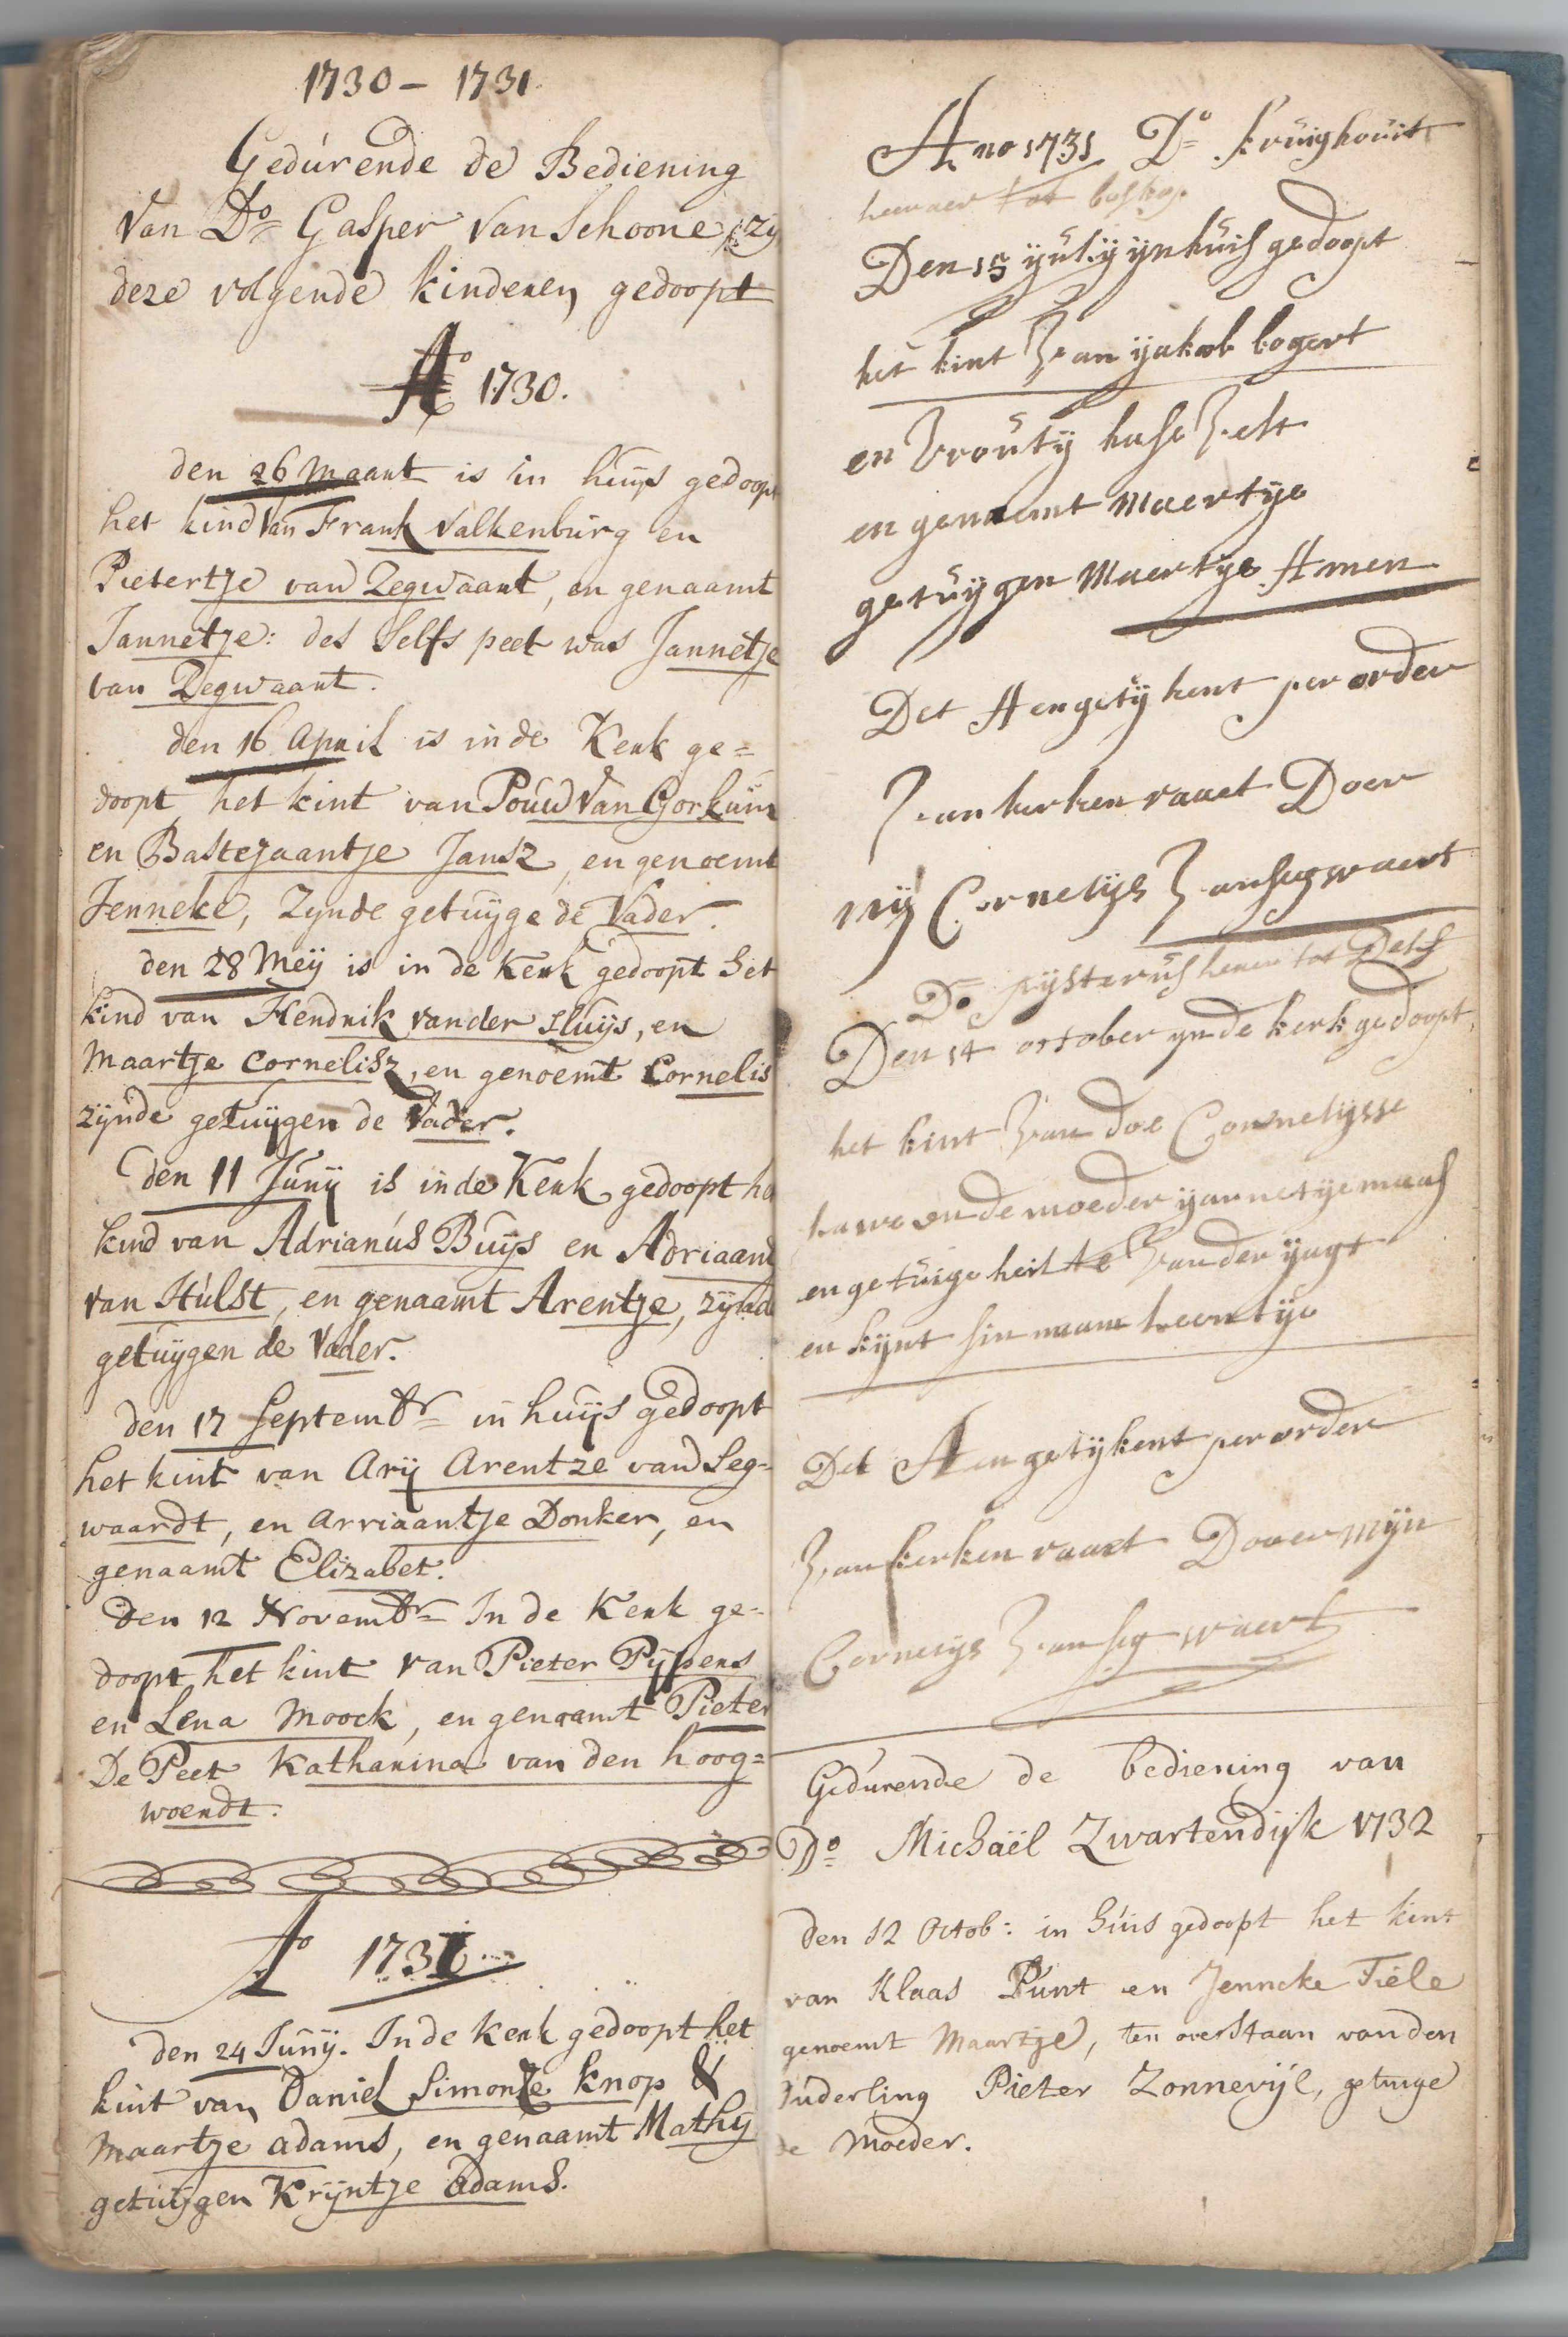 1730 – 1731
Gedúrende de Bediening
Van Do Gasper Van Schoone, zy
deze volgende kinderen gedoopt
Ao 1730.
den 26 Maart is in huijs gedoopt
het kind van Frank Valkenbúrg en
Pietertje van Zegwaart, en genaamt
Jannetje: des selfs peet was Jannetje
van Zegwaart.
den 16 April is in de Kerk ge=
doopt het kint van Pouw Van Gorkum
en Bastejaantje Jansz, en genoemt
Jenneke, Zynde getuyge de Vader.
den 28 Meij is in de Kerk gedoopt het
kind van Hendrik vander Sluijs, en
Maartje Cornelisz, en genoemt Cornelis
zijnde getuijgen de Vader.
den 11 Junij is in de Kerk gedoopt he
kind van Adrianús Buijs en Adriaant
van Húlst, en genaamt Arentje, zijnde
getuijgen de Vader.
den 17 Septembr in huijs gedoopt
het kint van Arij Arentze van Seg=
waardt, en Arriaantje Donker, en
genaamt Elizabet.
Den 12 Novembr In de Kerk ge=
doopt het kint van Pieter Pijpers
en Lena Moock, en genaamt Pieter
De Peet Katharina van den hoog=
woerdt.
Ao 1731
den 24 Junij. In de Kerk gedoopt het
kint van Daniel Simonze Knop &
Maartje adams, en genaamt Mathij
getuijgen Krijntje adams.
Anno 1731 Do kruighouit
heeraer tot boskop
Den 15 yulij yn huis gedoopt
het kint van yakob bogert
en vroutij hasevelt
en genaemt Maertije
getuijgen Maertije Amen
Det Aengetijkent per order
van kerken raaet Doer
mij Cornelijs van segwaert
Do pijsterus heraer tot Delf
Den 14 october yn de kerk gedoopt
het kint van doe Cornelijsse
en de moeder yannetije maas
en getuige heiltte van der yagt
en kijnt sin naam leentije
Det Aengetijkent per order
van kerken raaet Doaer mijn
Cornelijs van segwaert
Gedurende de bediening van
Do Michaël Zwartendijk 1732
Den 12 Octob: in húis gedoopt het kint
van Klaas Púnt en Jenneke Tiele
genoemt Maartje, ten overstaan van den
ouderling Pieter Zonnevijl, getuige
de Moeder.